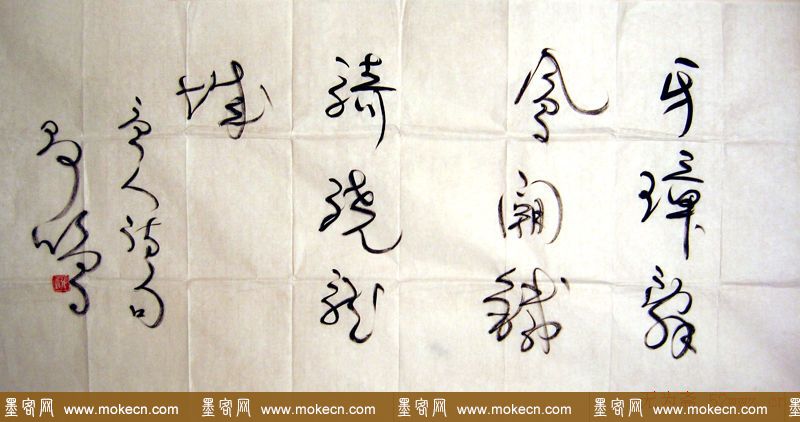 牙璋辭
鳳闕鐵
騎繞龍
城
唐人詩句
墨客网 www.mokecn.com 墨客网 www.mokecn.com 墨客网 www.mokecn.com 墨客网 www.mokecn.com